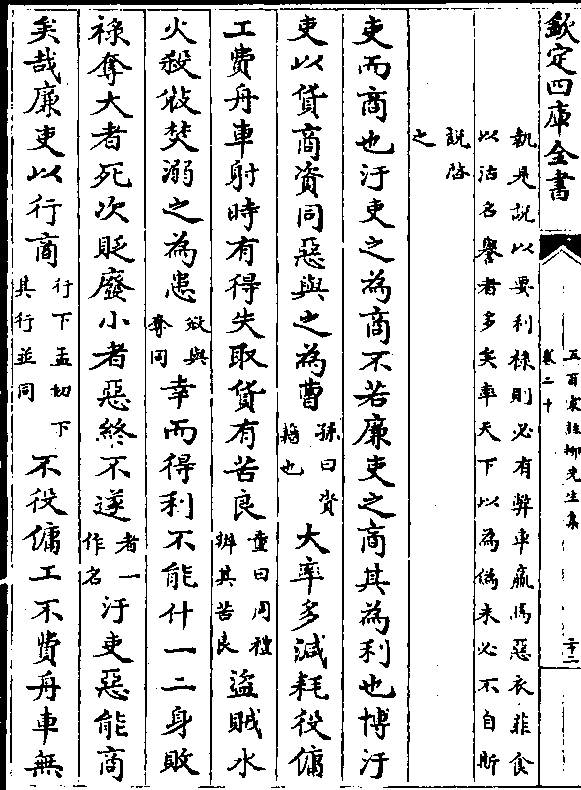 欽定四庫全書
五百家註柳先生集
卷二十
二十二
執是説以要利祿則必有弊車羸馬惡衣菲食
以沽名譽者多矣率天下以為偽未必不自斯
説啓
之
吏而商也汙吏之為商不若廉吏之商其為利也博汙
吏以貨商資同惡與之為曹孫曰資籍也大率多減耗役傭
工費舟車射時有得失取貨有苦良童曰周禮辨其苦良盜賊水
火殺敓焚溺之為患敓與奪同幸而得利不能什一二身敗
祿奪大者死次貶廢小者惡終不遂者一作名汙吏惡能商
矣哉廉吏以行商行下孟切下其行並同不役傭工不費舟車無